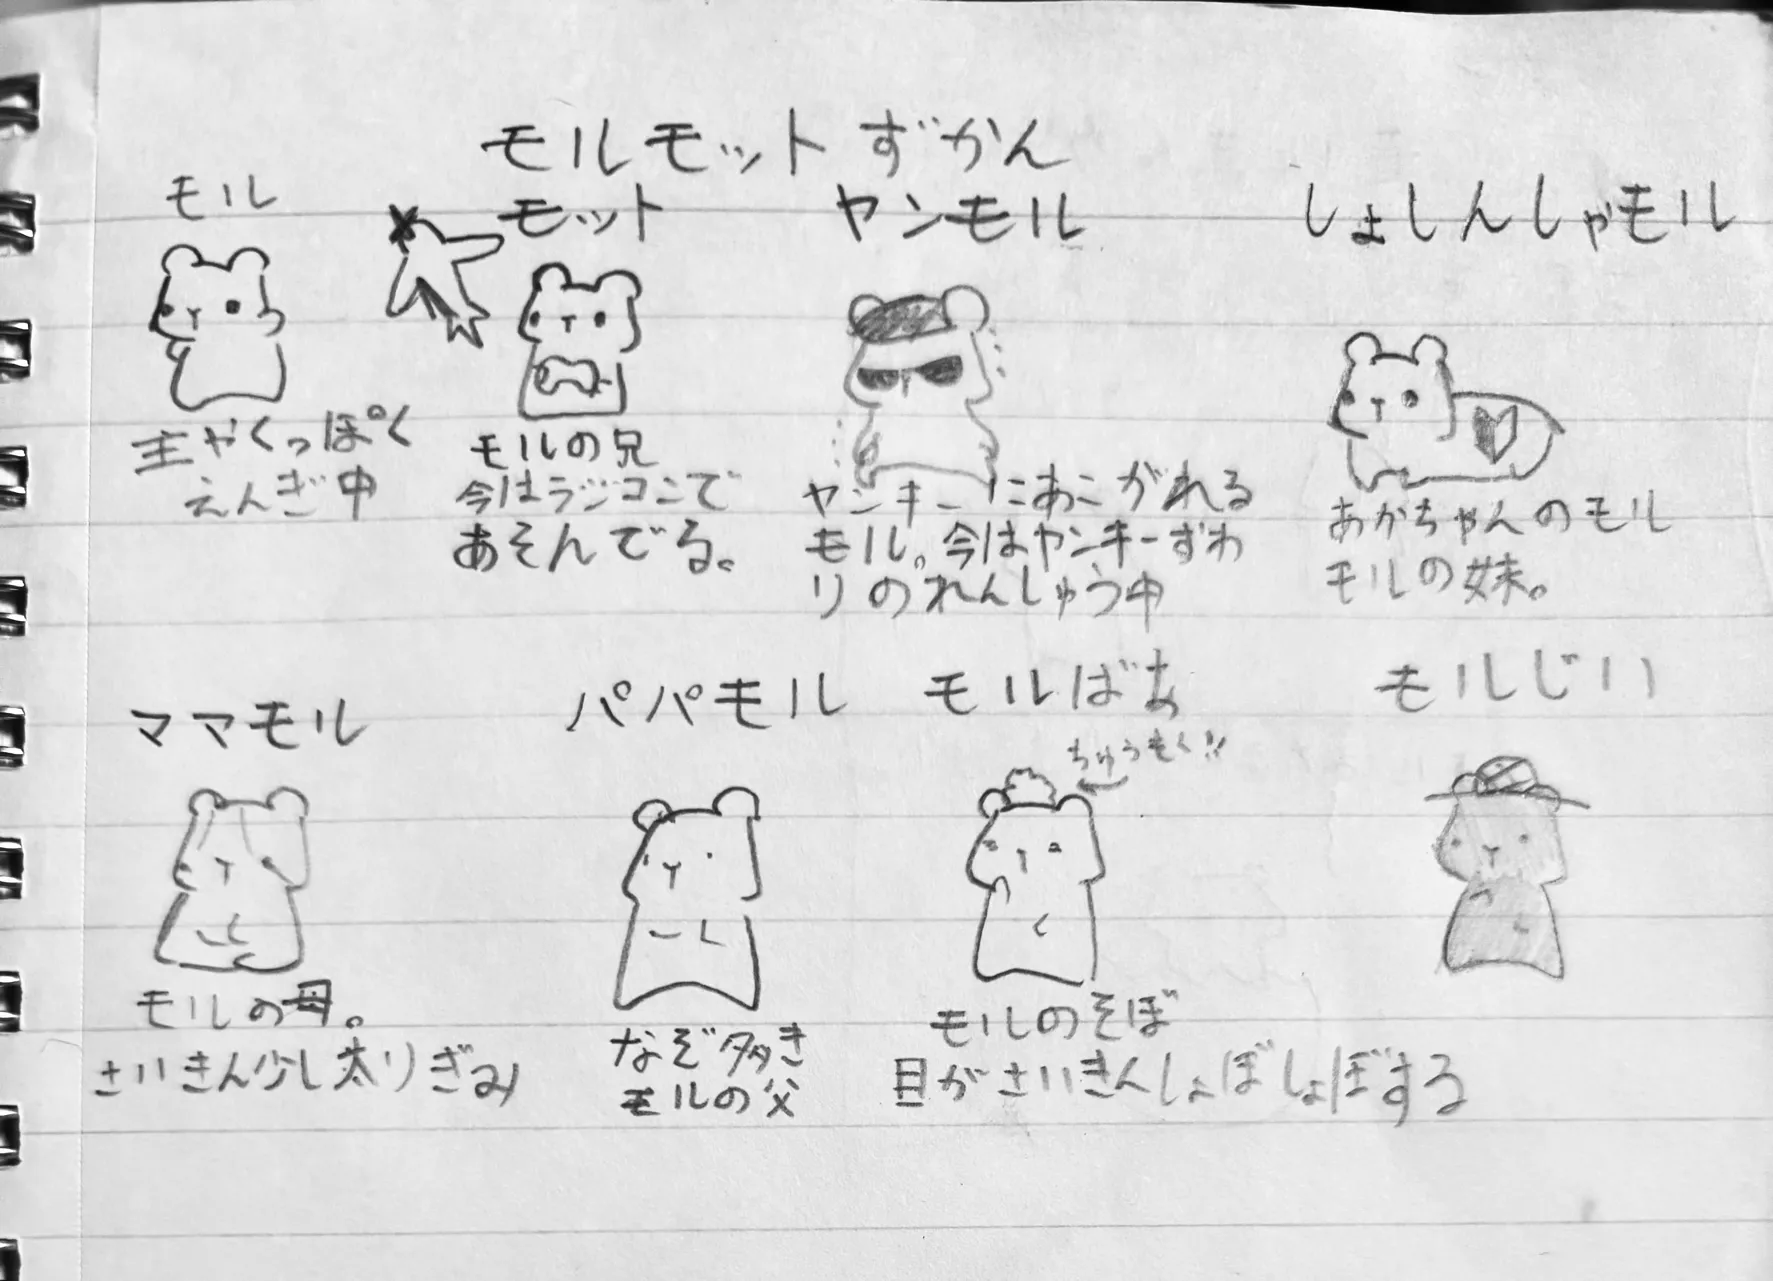 モルモットずかん
モル
主やくっぽく
えんぎ中
モット
モルの兄
今はラジコンで
あそんでる。
ヤンモル
ヤンキーにあこがれる
モル。今はヤンキーずわ
りのれんしゅう中
しょしんしゃモル
あかちゃんのモル
モルの妹。
ママモル
モルの母。
さいきん少し太りぎみ
パパモル
なぞ多き
モルの父
モルばあ
ちゅうもく!!
モルのそぼ
目がさいきんしょぼしょぼする
モルじい